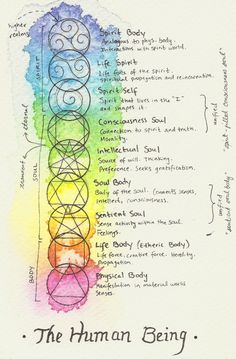 higher realms
SPIRIT
eternal
SOUL
BODY
Spirit Body
Analogous to phys. body.
Interactions with spirit world.
Life Spirit
Life force of the spirit
Spiritual propagation
Spirit Self
Spirit that lives in the "I"
and shapes it.
Consciousness Soul
Connection to spirit and truth.
Morality.
Intellectual Soul
Source of will. Thinking.
Preference. Seeks gratification.
Soul Body
Body of the soul.
intellect, consciousness.
Sentient Soul
Sense activity within the soul.
Feelings.
Life Body (Etheric Body)
Life force, creative force. Heredity.
Propagation.
Physical Body
Manifestation in material world
Senses.
unified
"spirit-filled consciousness soul"
unified
"sentient soul body"
· The Human Being ·